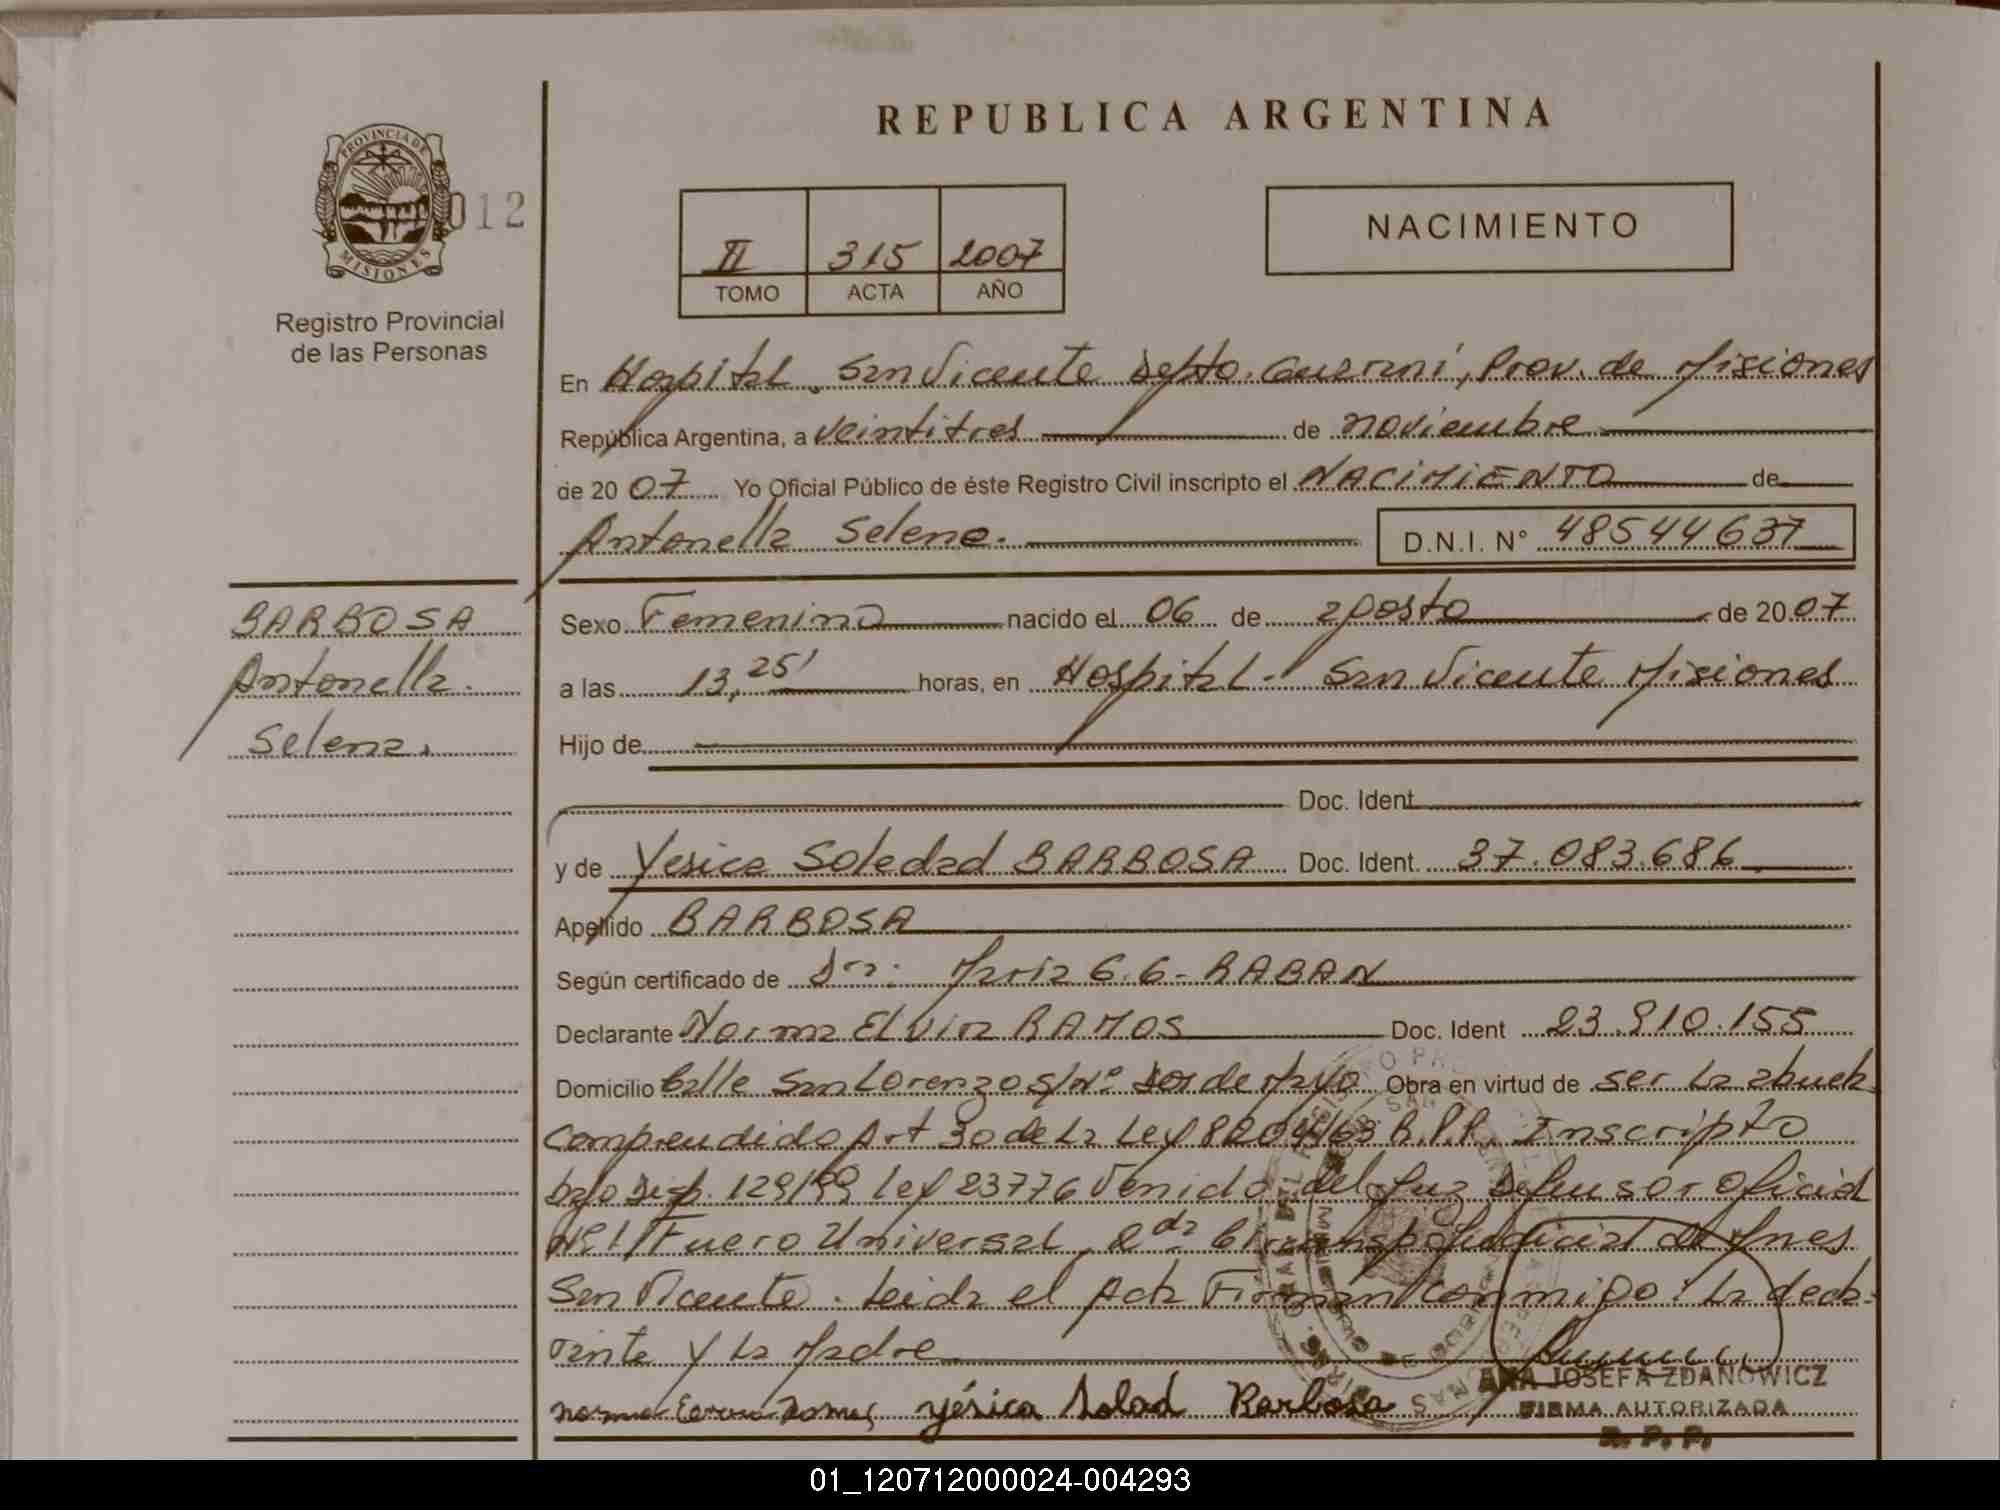 REPUBLICA ARGENTINA
PROVINCIA DE
MISIONES
012
Registro Provincial
de las Personas
II 315 2007
TOMO ACTA AÑO
NACIMIENTO
En Hospital. San Vicente Depto. Guaraní, Prov. de Misiones
República Argentina, a veintitres de noviembre
de 20 07 Yo Oficial Público de éste Registro Civil inscripto el NACIMIENTO de
Antonella Selena. D.N.I. N° 48544637
BARBOSA
Antonella.
Selena.
Sexo Femenino nacido el 06 de agosto de 20 07
a las 13,25' horas, en Hospital - San Vicente Misiones
Hijo de
Doc. Ident
y de Yesica Soledad BARBOSA Doc. Ident. 37.083.686
Apellido BARBOSA
Según certificado de Dra: Maria G. G. - RABAN
Declarante Norma Elvira RAMOS Doc. Ident 23.910.155
Domicilio Calle San Lorenzo s/Nº Dos de Mayo Obra en virtud de ser la abuela
comprendido Art 30 de la Ley 8204/63 R.P.P. Inscripto
bajo Disp. 129/99 Ley 23776 Venido del Defensor Oficial
Nº 1 Fuero Universal, 2da Circunscp Judicial de Mnes
San Vicente. Leida el Acta Firman conmigo: La decla-
rante y la Madre
Yésica Solad Barbosa
ANA JOSEFA ZDANOWICZ
FIRMA AUTORIZADA
R. P. P.
01_120712000024-004293